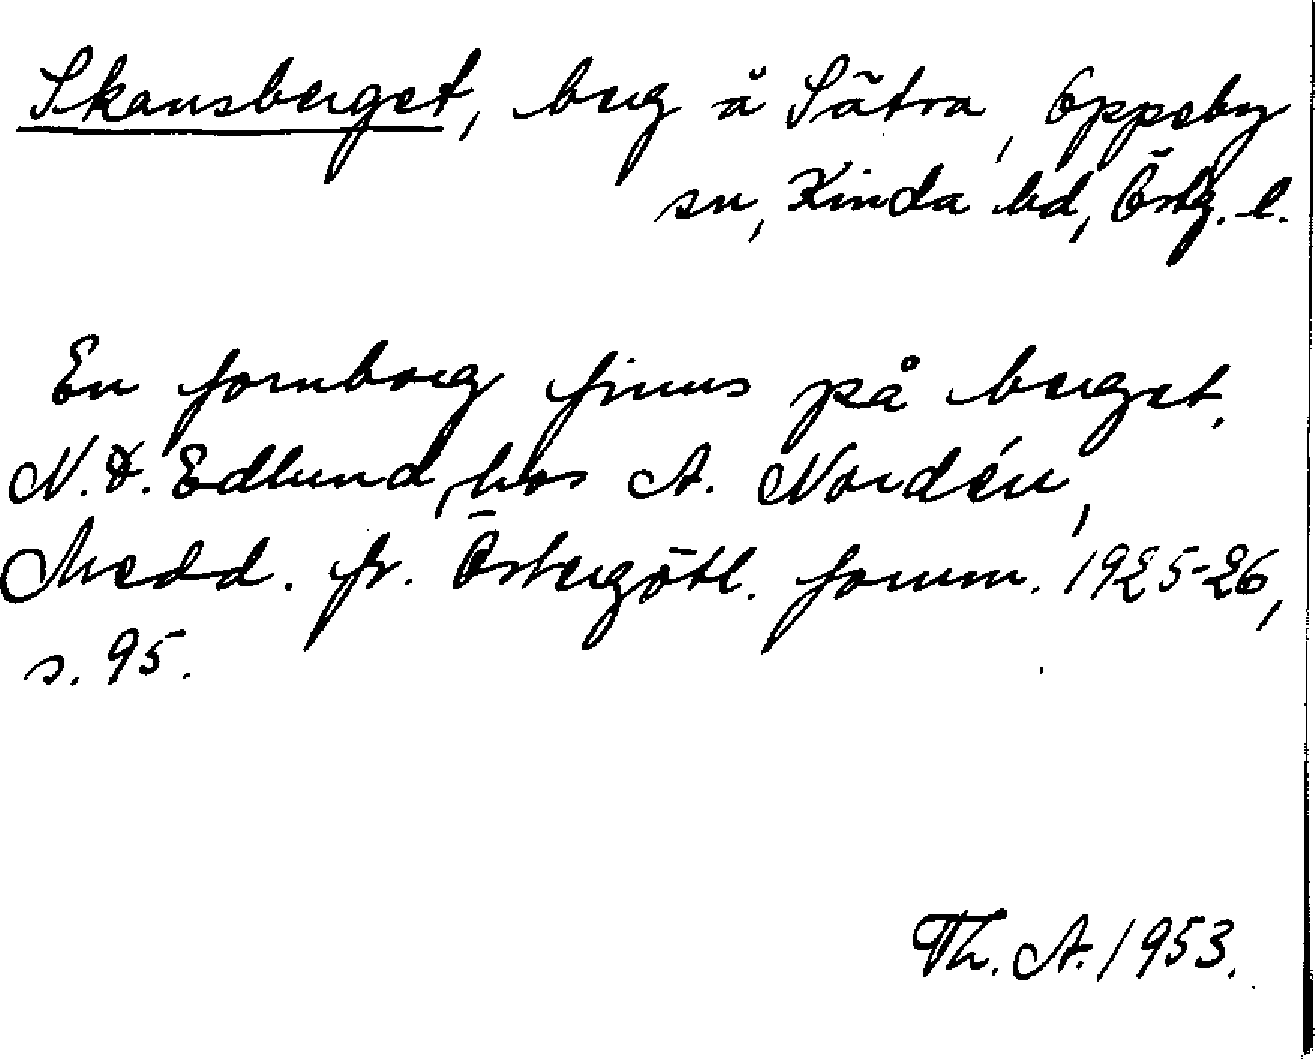 Skansberget, berg å Sätra, Oppeby
sn, Kinda hd, Östg. l.
En fornborg finns på berget.
N. D. Edlund, hos A. Nordén,
Medd. fr. Östergötl. fornm. 1925-26,
s. 95.
Th. A. 1953.